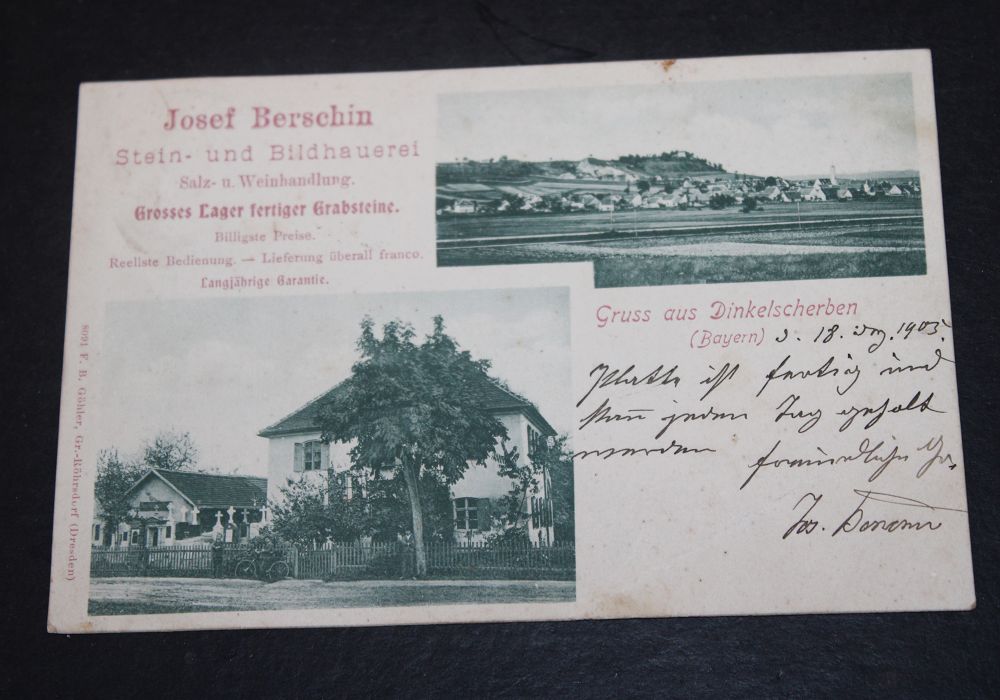 Josef Berschin
Stein- und Bildhauerei
Salz- u. Weinhandlung.
Grosses Lager fertiger Grabsteine.
Billigste Preise.
Reellste Bedienung. — Lieferung überall franco.
Langjährige Garantie.
Gruss aus Dinkelscherben
(Bayern) d. 18. Dez. 1905.
Platte ist fertig und
kann jeden Tag geholt
werden
freundlichst
Jos.
8091 F. B. Göhler, Gr.-Röhrsdorf (Dresden)